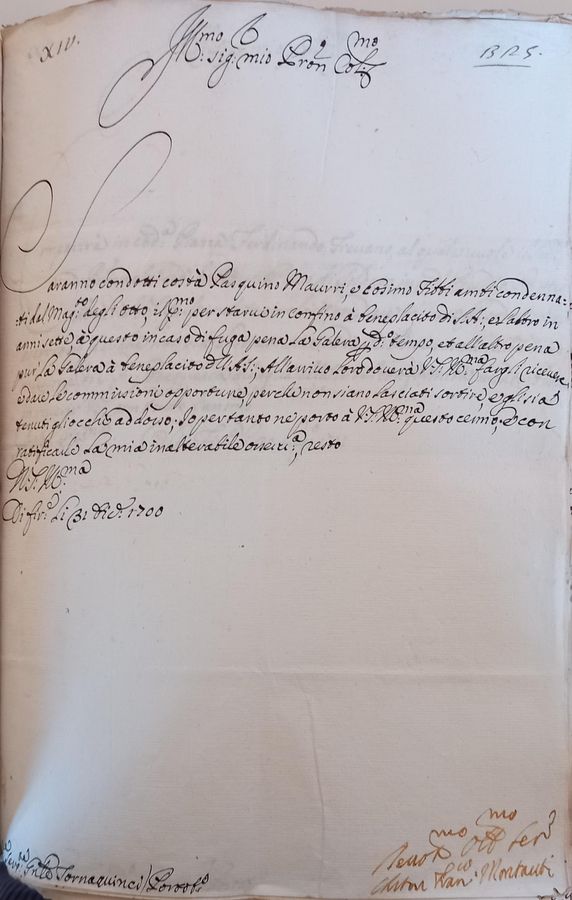 XIV.
Ill:mo Sig: mio Pron Col:mo
BRS.
Saranno condotti costà Pasquino Maurri, e Cosimo Fitti ambi condenna-
ti dal Mag:to degli Otto, il p:mo per starvi in confino à beneplacito di S.A:, e l'altro in
anni sette à questo in caso di fuga pena la Galera d:o tempo, et all'altro pena
pur la Galera à beneplacito dell'A.S.; All'arrivo loro doverà V.S. Ill:ma fargli ricevere
e dare le commissioni opportune, perche non siano lasciati sortire, e gli sia
tenuti gli occhi addosso; Io pertanto ne porto à V.S. Ill:ma questo cenno, e con
ratificarle la mia inalterabile osserv:a, resto
Di V.S. Ill:ma
Di Fir:e Li 31 Dic:e 1700
Tornaquinci
Devot:mo Obb:mo Ser:
Montauti